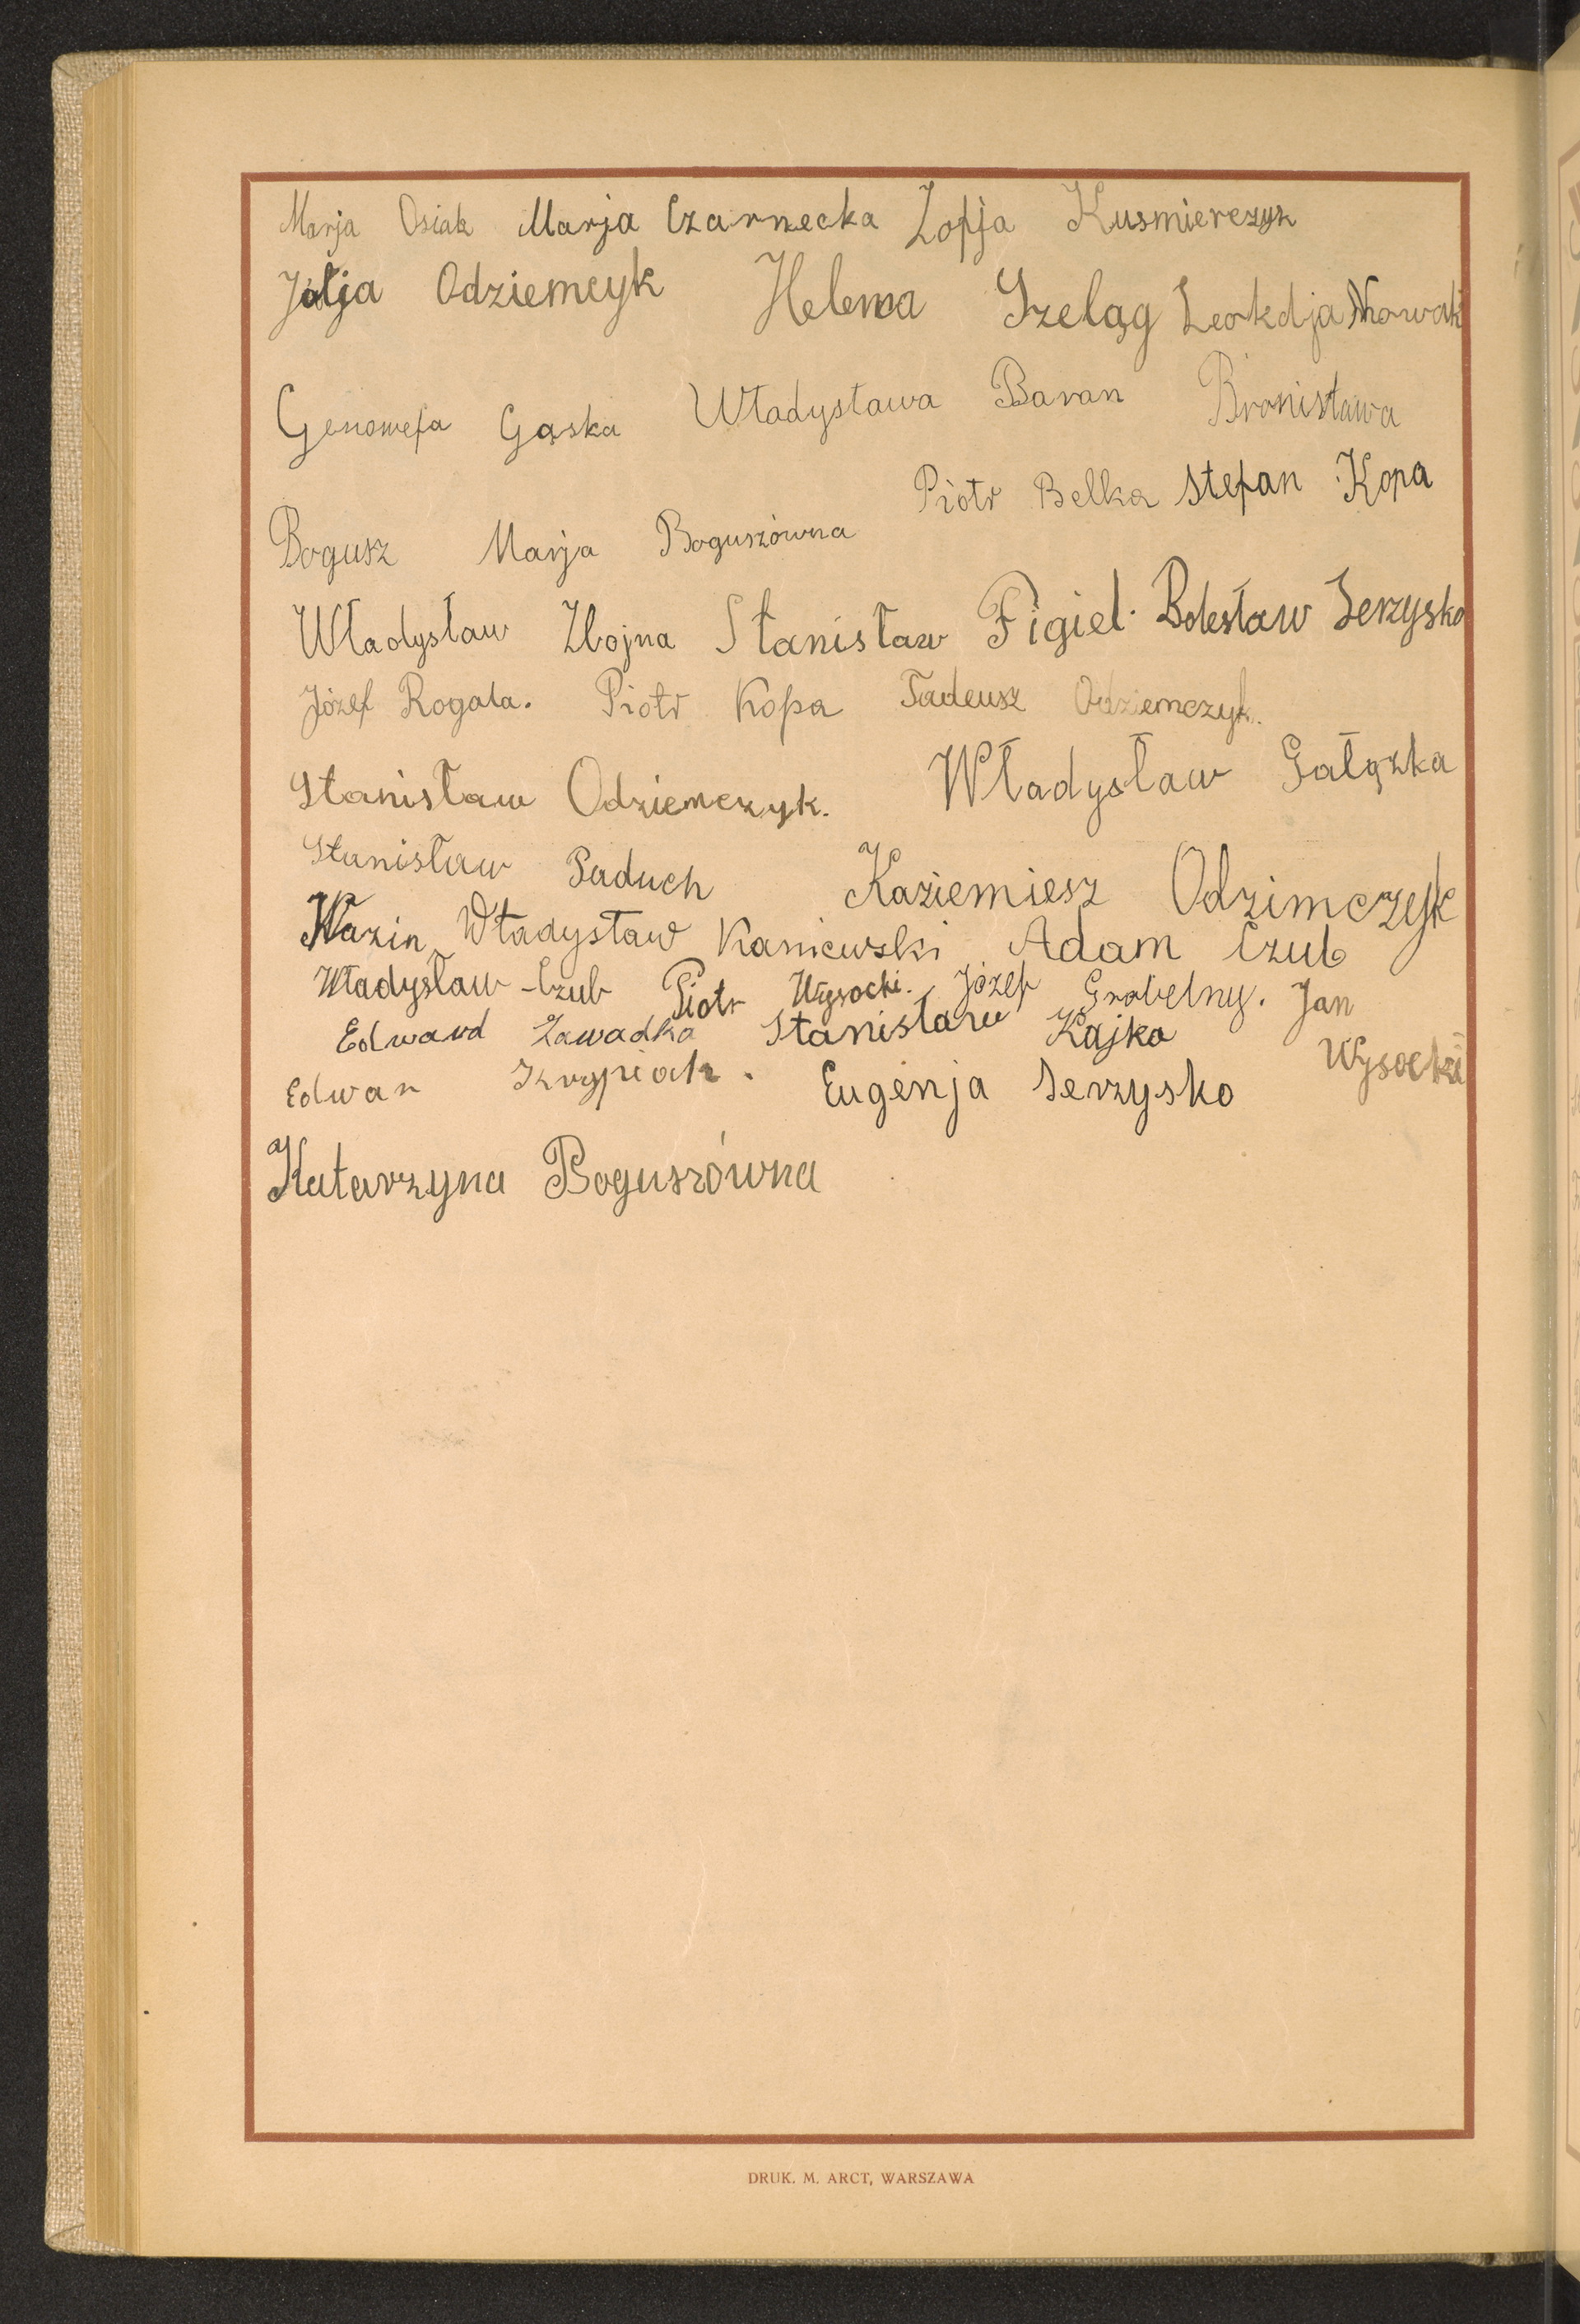 Marja Osiak Marja Czarnecka Zofja Kusmierczyk
Odziemcyk Helena Szeląg Leokdja Nowak
Genowefa Gąska Władysława Baran Bronisława
Piotr Belka Stefan Kopa
Bogusz Marja Boguszówna
Władysław Zbojna Stanisław Figiel. Bolesław Jerzysko
Józef Rogala. Piotr Kopa Tadeusz Odziemczyk.
Stanisław Odziemczyk. Władysław Gałązka
Stanisław Paduch Kaziemiesz Odzimczyk
Władysław Kaniewski Adam Czub
Władysław Czub Piotr Wysocki. Józef Grobelny. Jan
Edward Zawadka Stanisław Kajka Wysocki
Edwar Krypiak. Eugenja Jerzysko
Katarzyna Boguszówna
DRUK. M. ARCT, WARSZAWA